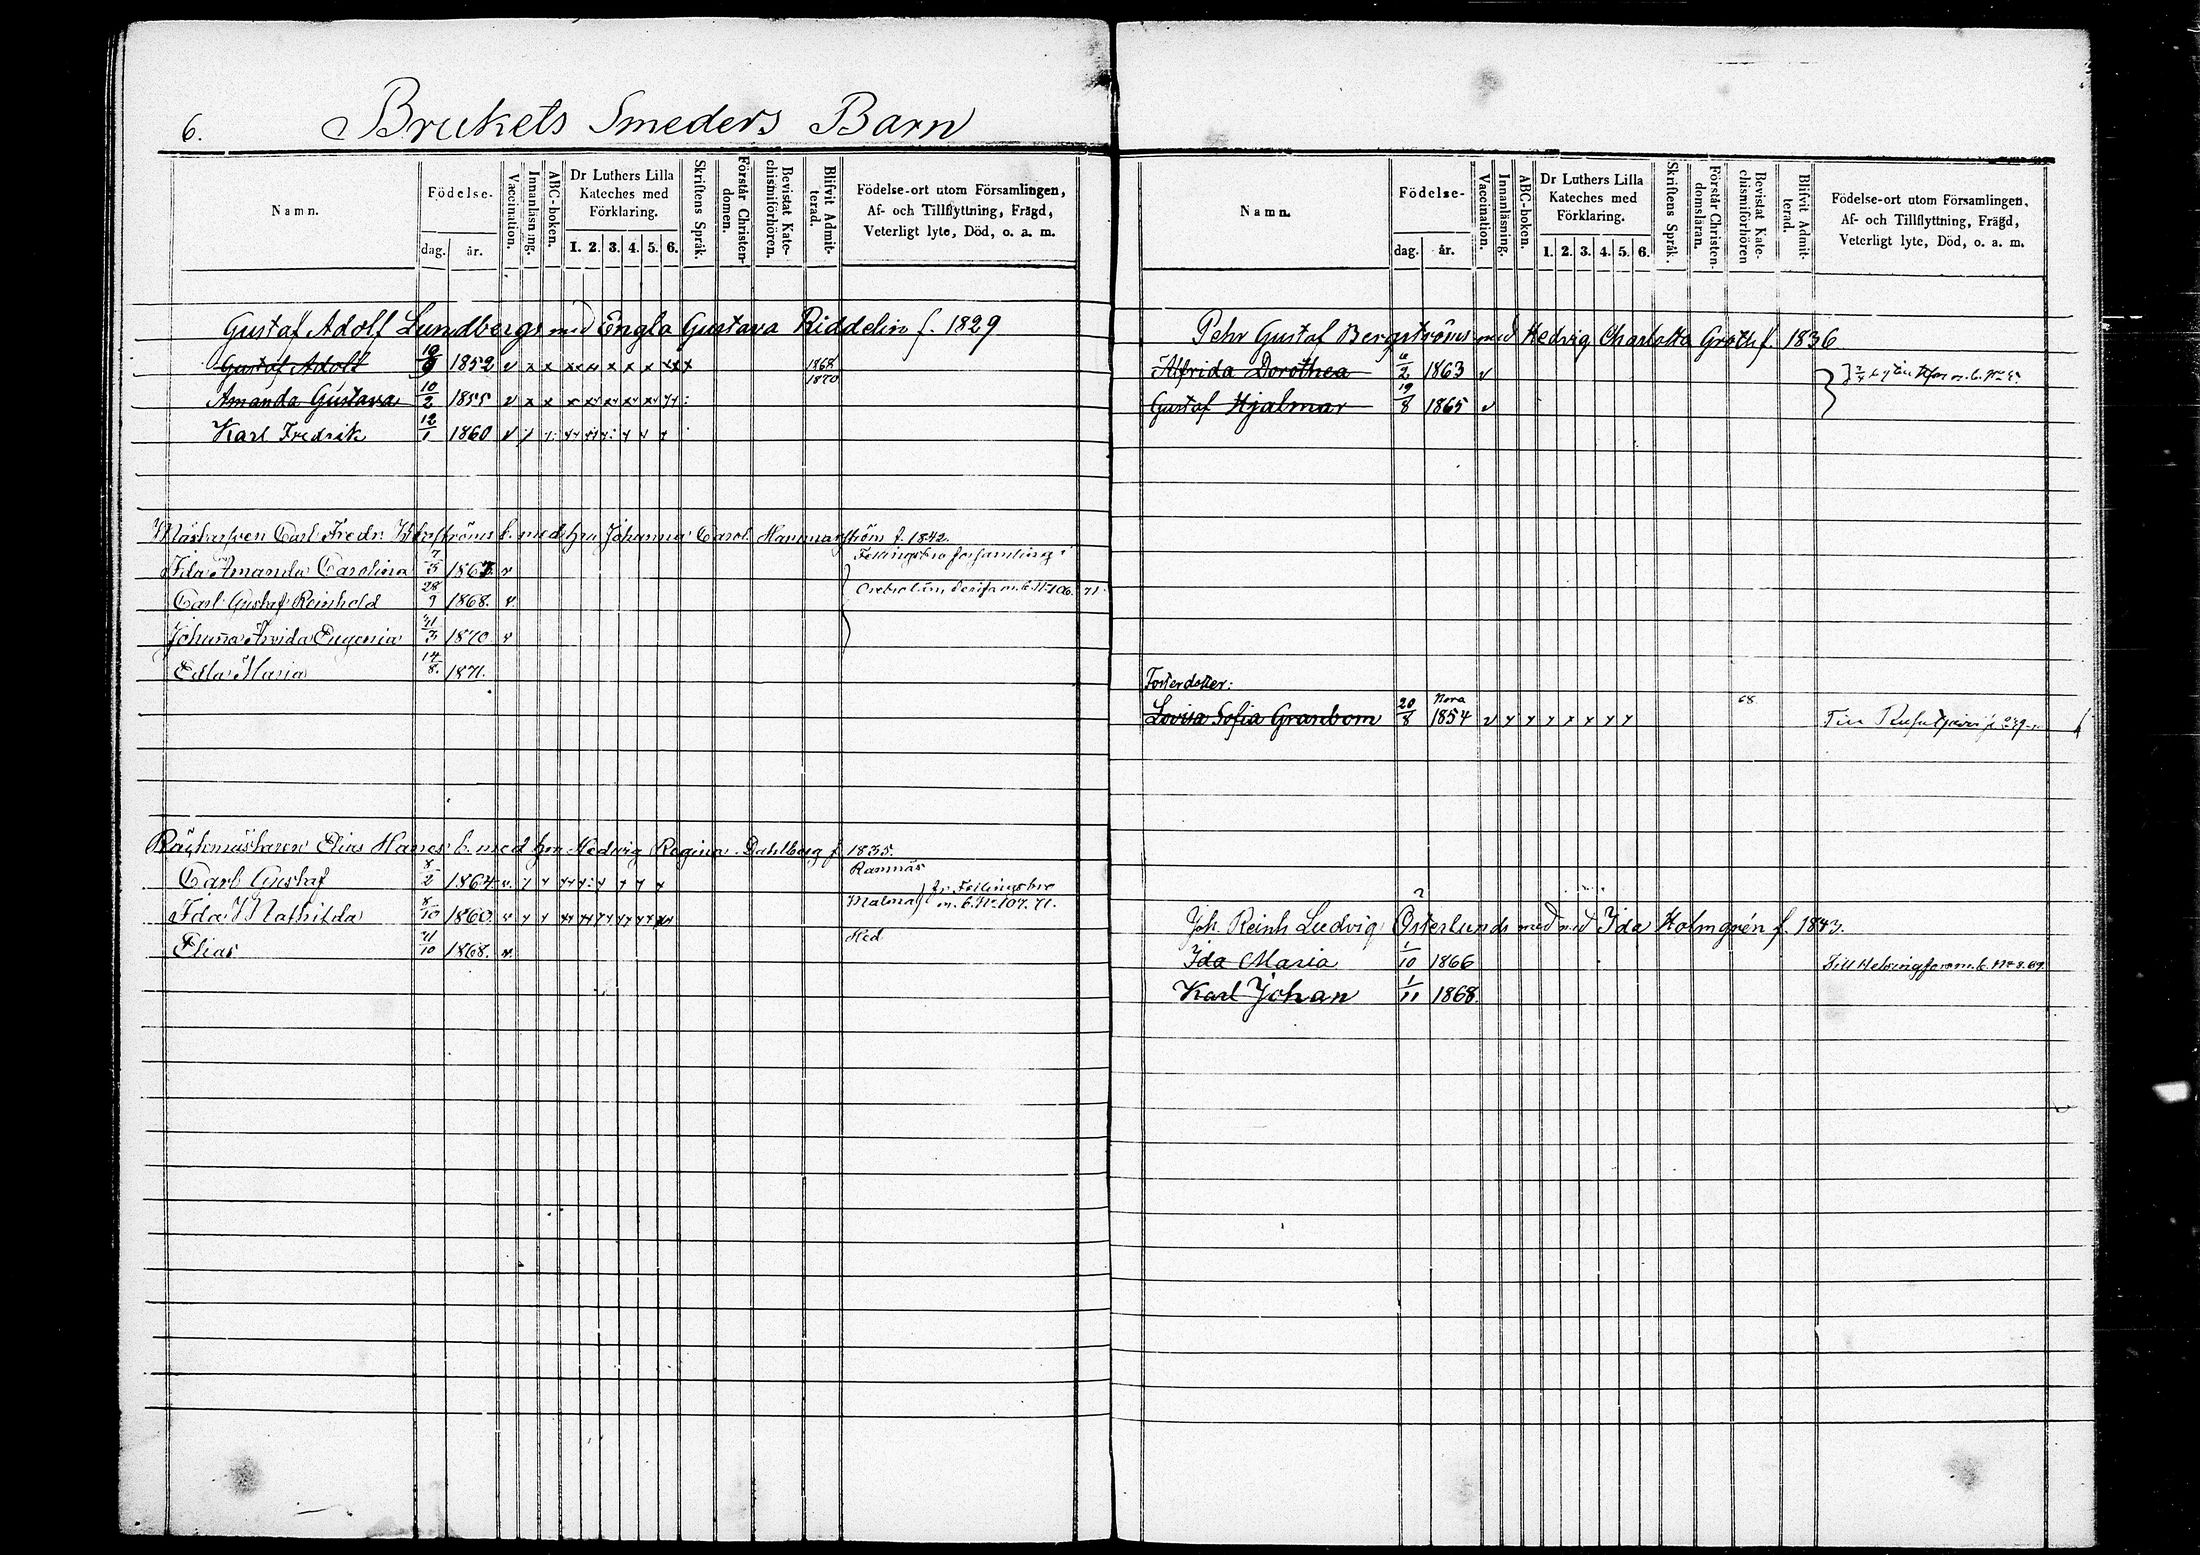 6.
Brukets Smeders Barn
Namn.
Födelse-
dag.
år.
Vaccination.
Innanläsning.
ABC-boken.
Dr Luthers Lilla
Kateches med
Förklaring.
1. 2. 3. 4. 5. 6.
Skriftens Språk.
Förstår Christen-
domen.
Bevistat Kate-
chismiförhören.
Blifvit Admit-
terad.
Födelse-ort utom Församlingen,
Af- och Tillflyttning, Frägd,
Veterligt lyte, Död, o. a. m.
Gustaf Adolf Lundbergs med Engla Gustava Riddelin f. 1829
Gustaf Adolf 1852 v x x 1868
1870
Amanda Gustava 10/2 1855 v x x
Karl Fredrik 12/1 1860
Carl Fredr. b. med hu Johanna Carol. Hammarström f. 1842.
Fellingsbro församling
Ida Amanda Carolina 7/5 1867. v
Carl Gustaf Reinhold 28/9 1868. v
Johana Arvida Eugenia 1870 v
Edla Maria 14/8. 1871.
Elias Hanes b. med hu Hedwig Regina Dahlberg f 1835.
Carl Gustaf 8/2 1864 v. Ramnäs
Ida Mathilda 8/10 1860 v Malma fr. Fellingsbro
m. b. No 107. 71.
Elias 1868. v. Hed
Namn.
Födelse-
dag.
år.
Vaccination.
Innanläsning.
ABC-boken.
Dr Luthers Lilla
Kateches med
Förklaring.
1. 2. 3. 4. 5. 6.
Skriftens Språk.
Förstår Christen-
domsläran.
Bevistat Kate-
chismiförhören
Blifvit Admit-
terad.
Födelse-ort utom Församlingen,
Af- och Tillflyttning, Frägd,
Veterligt lyte, Död, o. a. m.
Pehr Gustaf Bergströms med Hedvig Charlotta Groth f. 1836
Alfrida Dorothea 6/2 1863 v
Gustaf Hjalmar 19/8 1865 v
Fosterdotter:
Nora 68
Lovisa Sofia Granbom 20/8 1854 v
Joh. Reinh Ludvig Österlunds med Ida Holmgrén f. 1843.
Ida Maria 1/10 1866 Till Helsingfors m. b. No 8. 69.
Karl Johan 1/11 1868.